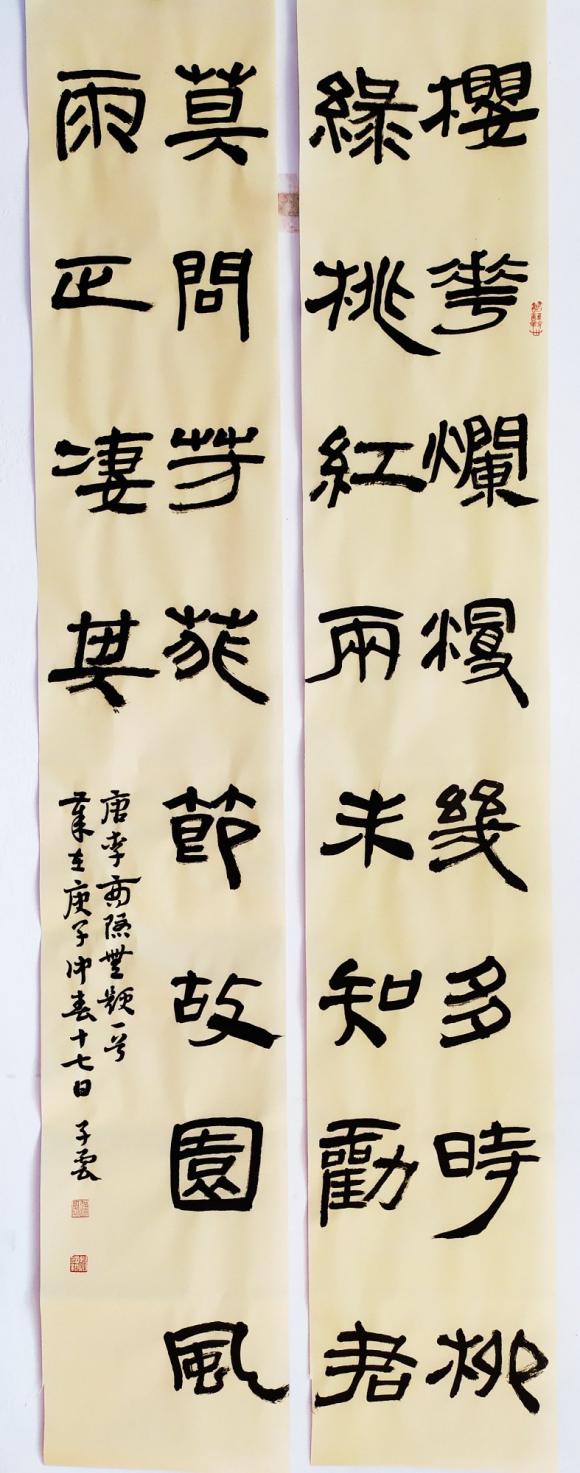 櫻華爛熳幾多時柳
綠桃紅兩未知勸君
莫問芳菲節故園風
雨正凄其
唐李商隱無題一首
在庚子仲春十七日 子雲